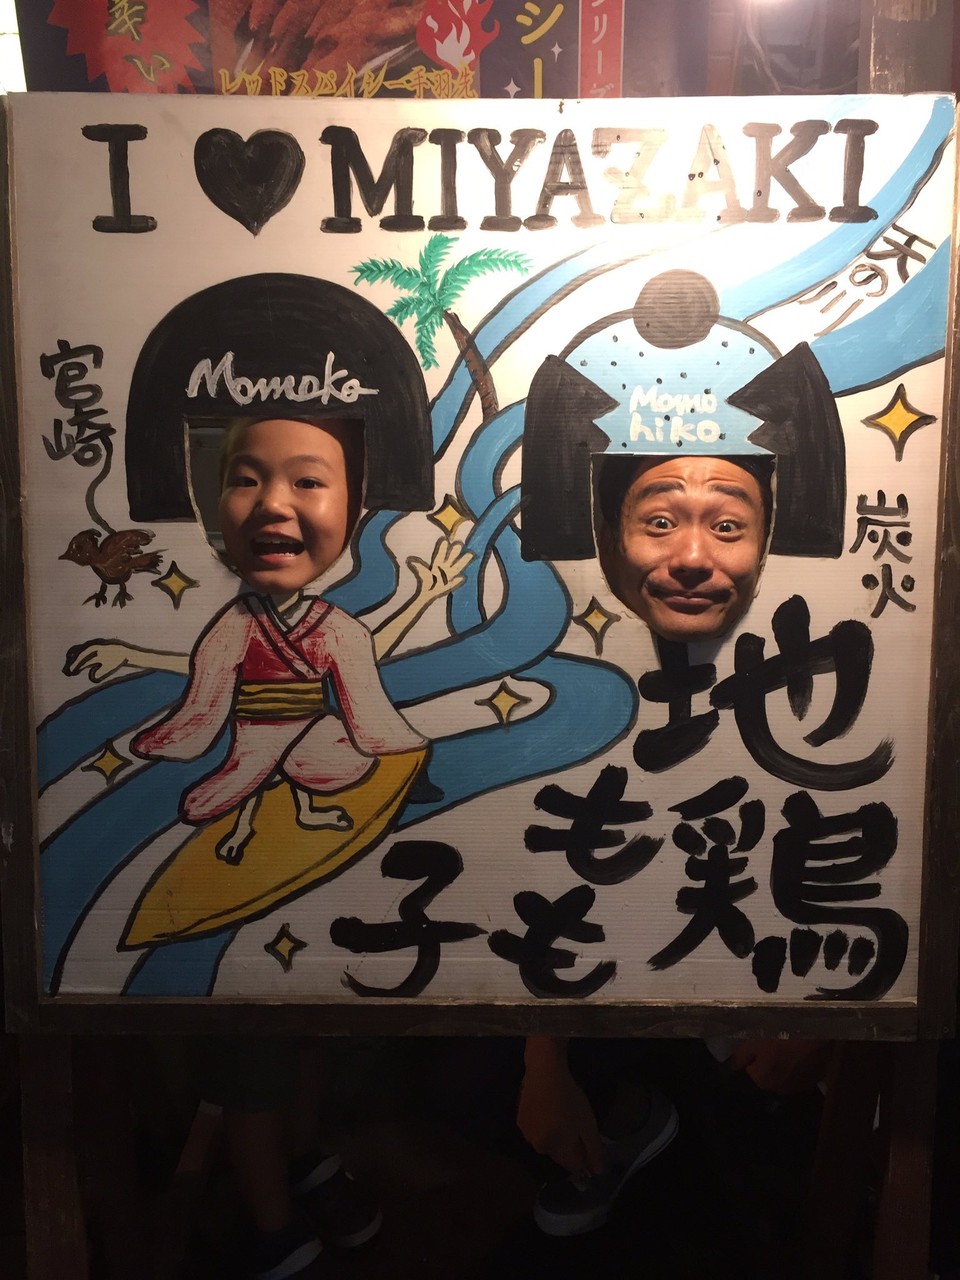 辛い
レッドスパイシー手羽先
シー
リーズ
I ♥ MIYAZAKI
天の川
宮崎
Momoko
Momo
hiko
炭火
地鶏
もも
子